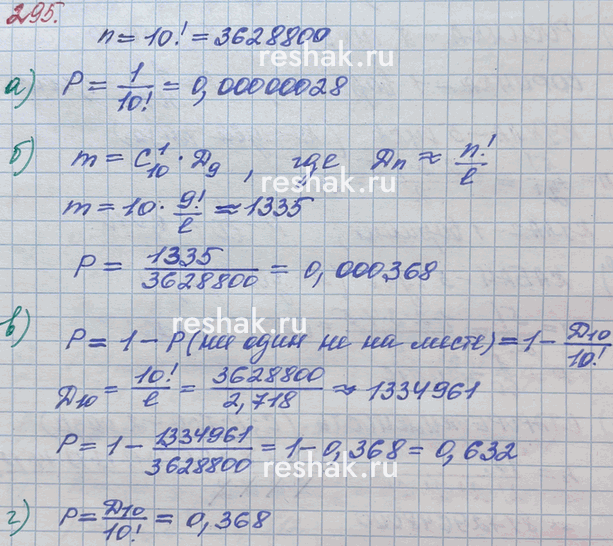 295.
n = 10! = 3628800
а) P = 1/10! = 0,00000028
б) m = C¹₁₀ · Д₉ , где Дn ≈ n!/e
m = 10 · 9!/e ≈ 1335
P = 1335/3628800 = 0,000368
в) P = 1 - P(ни один не на месте) = 1 - Д₁₀/10!
Д₁₀ = 10!/e = 3628800/2,718 ≈ 1334961
P = 1 - 1334961/3628800 = 1 - 0,368 = 0,632
г) P = Д₁₀/10! = 0,368
reshak.ru
reshak.ru
reshak.ru
reshak.ru
reshak.ru
reshak.ru
reshak.ru